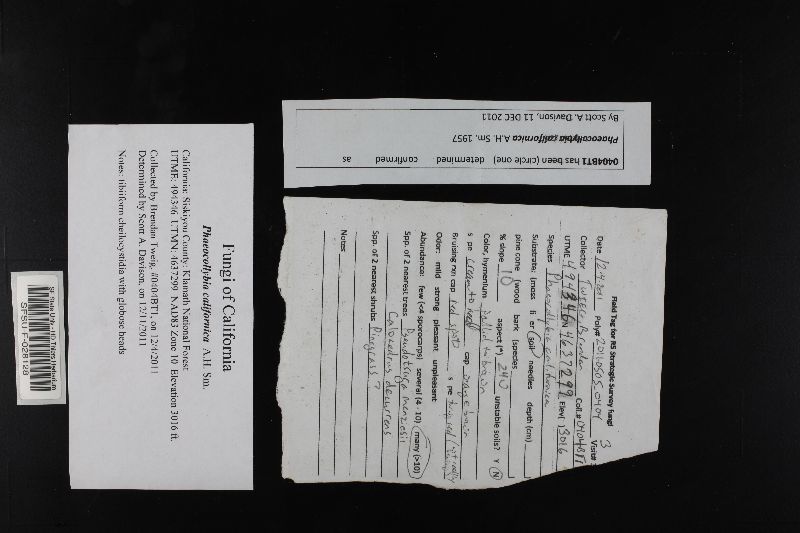 Fungi of California
Phaeocollybia californica A.H. Sm.
California: Siskiyou County: Klamath National Forest
UTME: 494346 UTMN: 4637299 NAD83 Zone 10 Elevation 3016 ft.
Collected by Brendan Twieg, #0404BT1, on 12/4/2011
Determined by Scott A. Davison, on 12/11/2011
Notes: tibiiform cheilocystidia with globose heads
0404BT1 has been (circle one) determined confirmed as
Phaeocollybia californica A.H. Sm. 1957
By Scott A. Davison, 11 DEC 2011
Field Tag for R5 Strategic Survey fungi
Date Poly# 20110505-0404 Visit# 3
Collector Twieg, Brendan Coll.# 0404BT1
UTME 494346 N 4637299 Elev. 3016
Species Phaeocollybia californica
Substrate: (moss soil needles depth (cm)
pine cone (wood bark (species
% slope 10 aspect (°) 240 unstable soils? Y N
Color, hymentium
cap
Bruising rxn cap red spots
Odor: mild strong pleasant unpleasant
Abundance: few (<4 sporocarps) several (4 - 10) many (>10)
Spp. of 2 nearest trees Pseudotsuga menziesii
Calocedrus decurrens
Spp. of 2 nearest shrubs
Notes
SF State Univ - HD Thiers Herbarium
SFSU F-028128